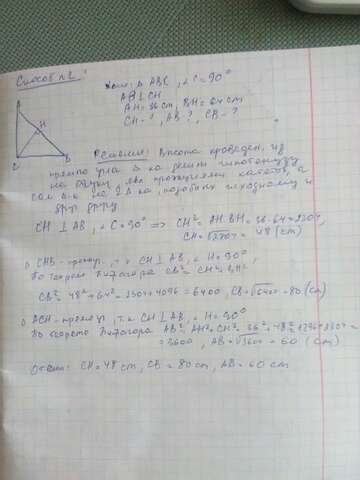 Способ №2.
Дано: Δ ABC, ∠C=90°
AB⊥CH
AH=36cm, BH=64cm
CH-?, AB-?, CB-?
A
H
C
B
Решение: Высота проведен. из
прямого угла Δ-ка делит гипотенузу
на два
а
сам Δ-к на 2 Δ-ка, подобных исходному и
друг другу
CH ⊥ AB, ∠C=90° => CH²=AH·BH=36·64=2304,
CH=√2304=48(cm)
CHB-прямоуг., т.к CH⊥AB, ∠H=90°
По теореме Пифагора CB²=CH²+BH²
CB²=48²+64²=2304+4096=6400, CB=√6400=80(cm)
ACH-прямоуг, т.к. CH⊥AB, ∠H=90°
По теореме Пифагора AB²=AH²+CH²=36²+48²=1296+2304=
=3600, AB=√3600=60(cm)
Ответ: CH=48cm, CB=80cm, AB=60cm